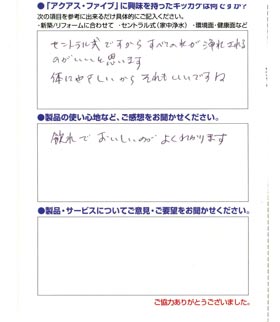 ●「アクアス・ファイブ」に興味を持ったキッカケは何ですか?
次の項目を参考に出来るだけ具体的にご記入ください。
・新築/リフォームに合わせて ・セントラル式(家中浄水) ・環境面・健康面など
セントラル式ですから すべての水が浄水される
のがいいと思います
体にやさしいから それもいいですね
●製品の使い心地など、ご感想をお聞かせください。
飲水で おいしいのが よくわかります
●製品・サービスについてご意見・ご要望をお聞かせください。
ご協力ありがとうございました。